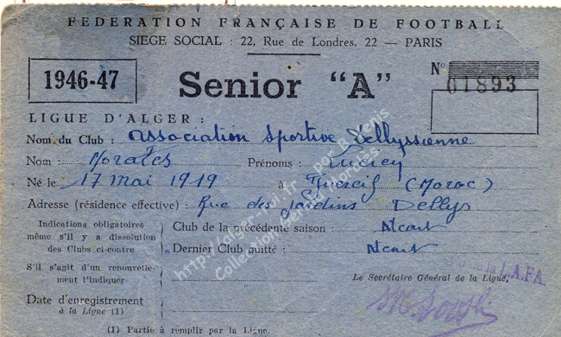 FEDERATION FRANÇAISE DE FOOTBALL
SIEGE SOCIAL : 22, Rue de Londres, 22 — PARIS
1946-47
Senior "A"
N° 01893
LIGUE D'ALGER :
Nom du Club : Association Sportive Dellyssienne
Nom : Morales Prénoms : Lucien
Né le 17 mai 1919 à (Maroc)
Adresse (résidence effective) : Rue des Jardins Dellys
Indications obligatoires
même s'il y a dissolution
des Clubs ci-contre
Club de la précédente saison : Néant
Dernier Club quitté : Néant
S'il s'agit d'un renouvelle-
ment l'indiquer
Le Secrétaire Général de la Ligue,
L.A.F.A.
Date d'enregistrement
à la Ligue (1)
(1) Partie à remplir par la Ligue.